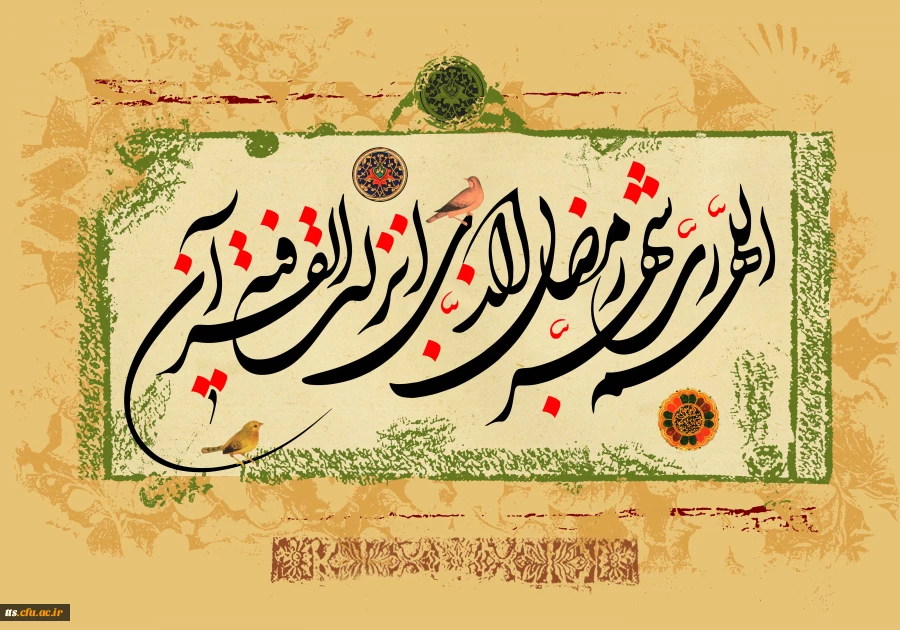 اللهم ربّ شهر رمضان الذی انزلت فیه القرآن
tts.cfu.ac.ir